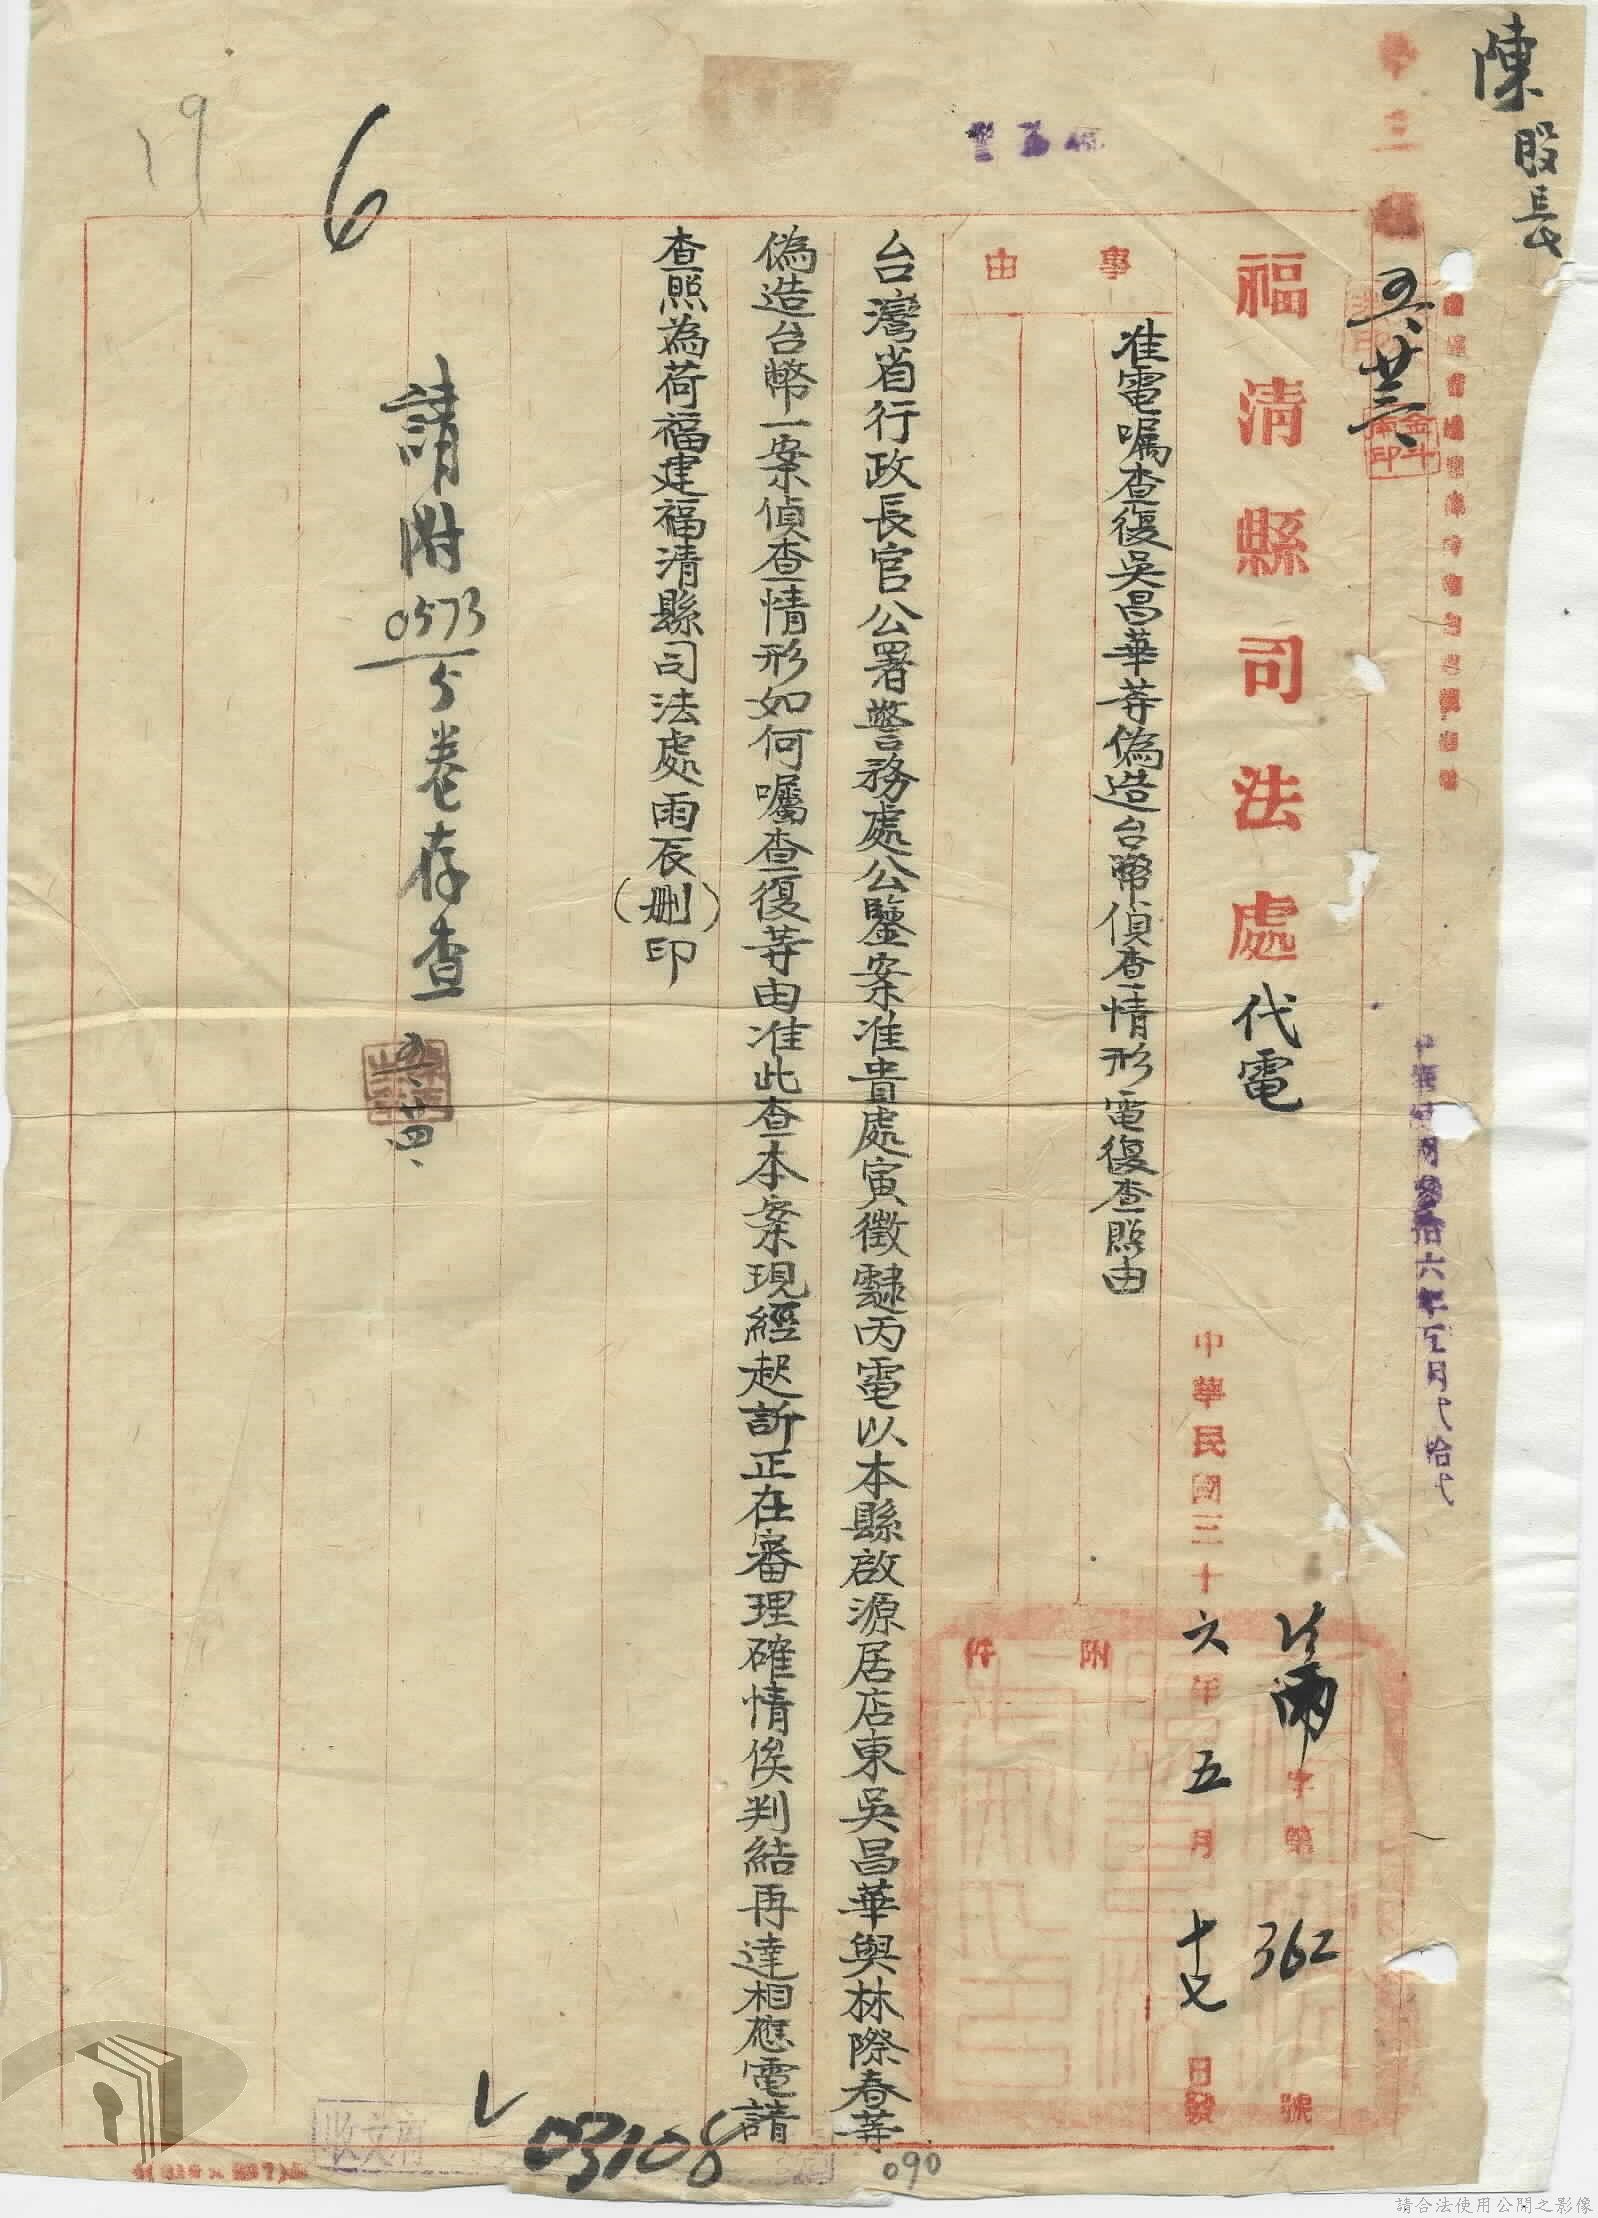 陳股長
五、廿三、
中華民國參拾六年五月貳拾弍
福清縣司法處代電
字第362號
中華民國三十六年五月十七日發
事由
准電囑查復吳昌華等偽造台幣偵查情形電復查照由
附件
台灣省行政長官公署警務處公鑒案准貴處寅徵丙電以本縣啟源居店東吳昌華與林際春等
偽造台幣一案偵查情形如何囑查復等由准此查本案現經起訴正在審理確情俟判結再達相應電請
查照為荷福建福清縣司法處雨辰(刪)印
請附0573/5卷存查
五、廿四、
6
19
收文
03108
090
請合法使用公開之影像